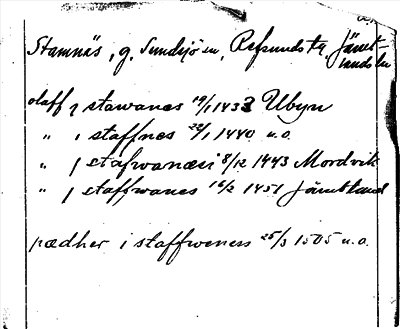 Stamnäs, g. Sundsjö sn, Refsunds tg, Jämt-
lands ln
olaff j stawanes 19/1 1433 Ubyn
" i staffnes 22/1 1440 u.o.
" j stafwanæsi 8/12 1443 Mordvik
" j staffwanes 16/2 1451 Jämtland
pædher i staffweness 25/3 1505 u.o.